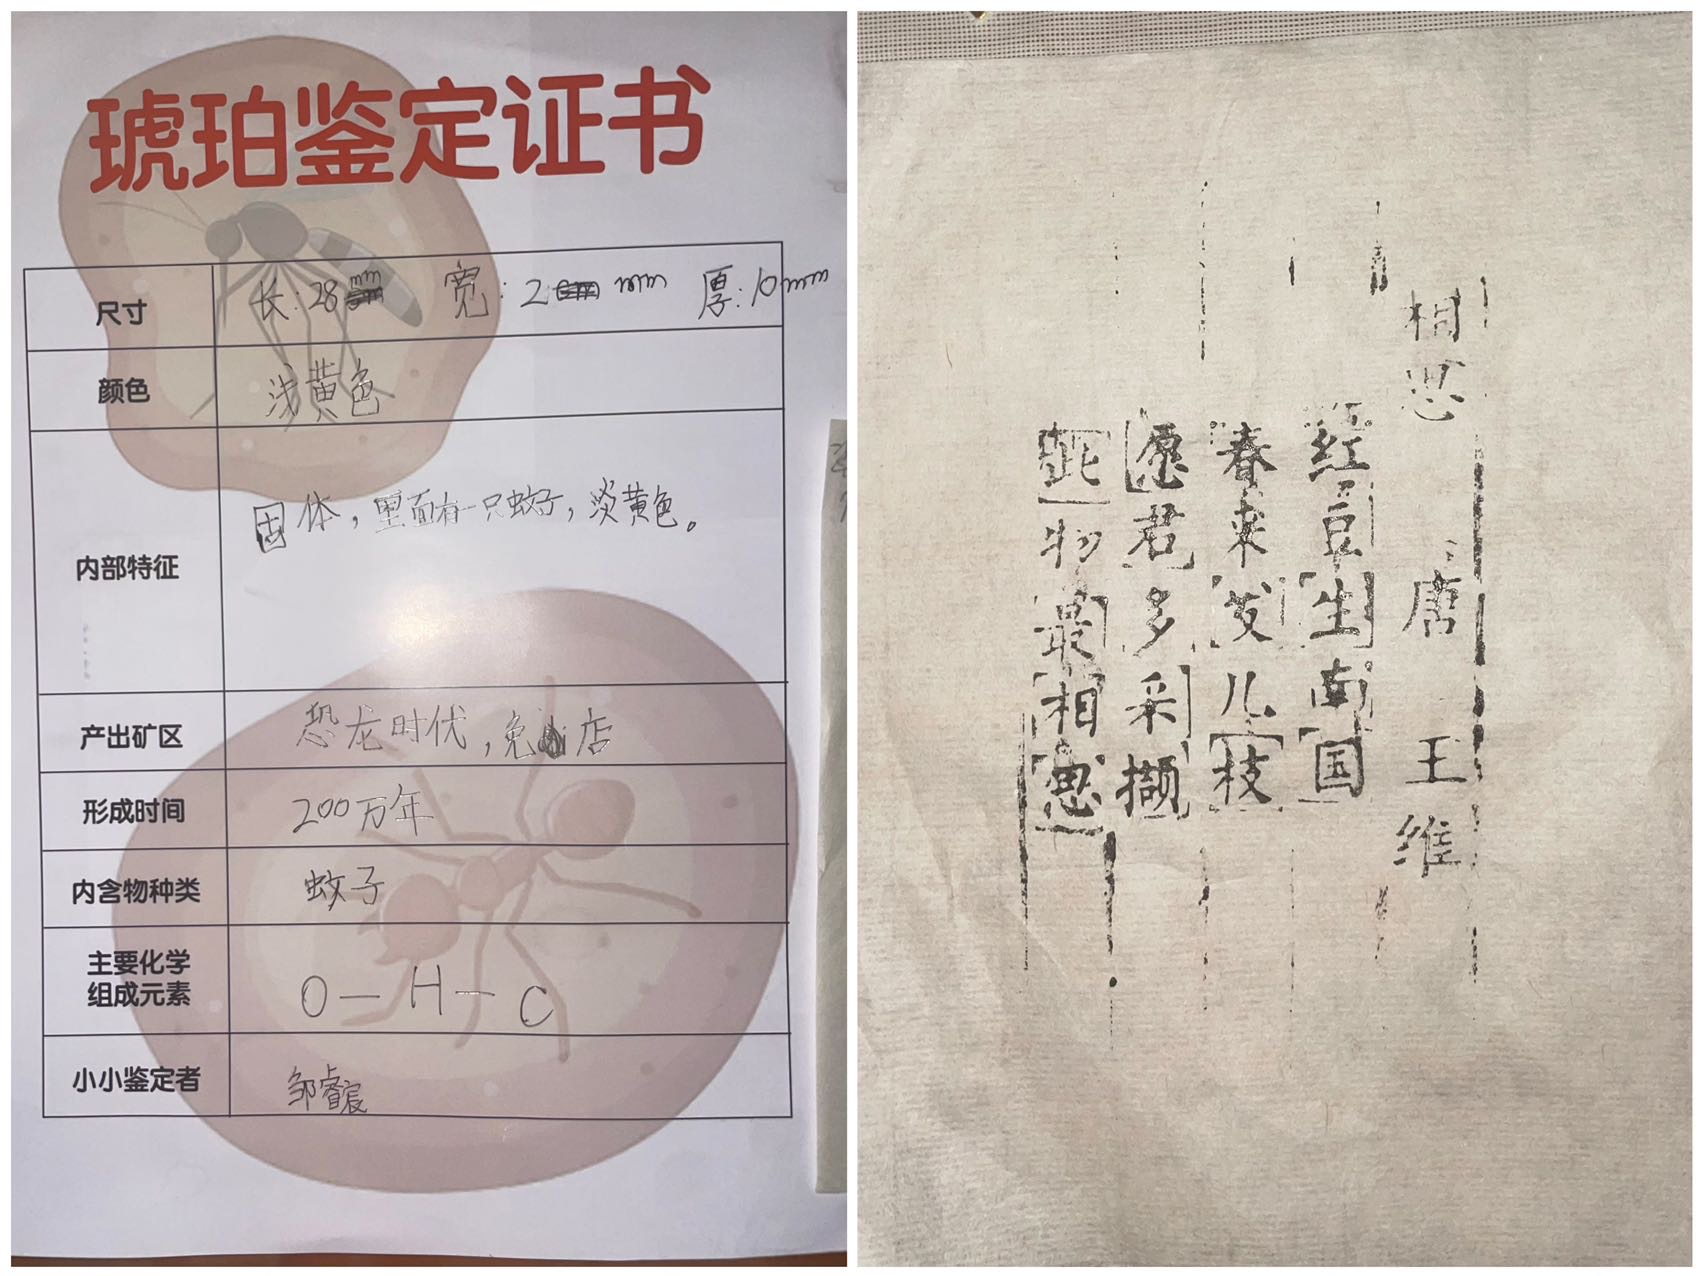 琥珀鉴定证书
尺寸 长:28mm 宽:2mm 厚:10mm
颜色 浅黄色
内部特征 固体，里面有一只蚊子，淡黄色。
产出矿区 恐龙时代，兔店
形成时间 200万年
内含物种类 蚊子
主要化学
组成元素 O—H—C
小小鉴定者 邹睿宸
相思 唐 王维
红豆生南国
春来发儿枝
愿君多采撷
此物最相思